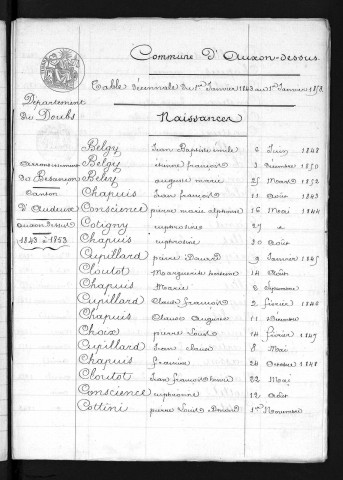 Commune D'Auxon-dessus
Table décennale du 1er Janvier 1843 au 1er Janvier 1853
Département
Du Doubs
Naissances
arrondissement
De Besançon
Canton
D'Audeux
auxon Dessus
1843 à 1853
Belgy Jean Baptiste emile 6 Juin 1848
Belgy etienne françois 3 Décembre 1850
Beley auguste marie 25 Mars 1852
Chapuis Jean françois 11 Août 1843
Conscience pierre marie alphonse 16 Mai 1844
Cotigny euphrosine 27 »
Chapuis euphrosine 20 Août
Cupillard pierre 9 Janvier 1845
Cloutot Marguerite 14 Août
Chapuis Marie 8 Septembre
Cupillard Claude françois 2 février 1846
Chapuis Claude Auguste 11 Décembre
Choix pierre Louis 14 février 1847
Cupillard Jean claude 8 Mai
Chapuis 24 Octobre 1848
Cloutot Jean françois 22 Mai
Conscience 12 Août
Cottini pierre Louis 1er Novembre